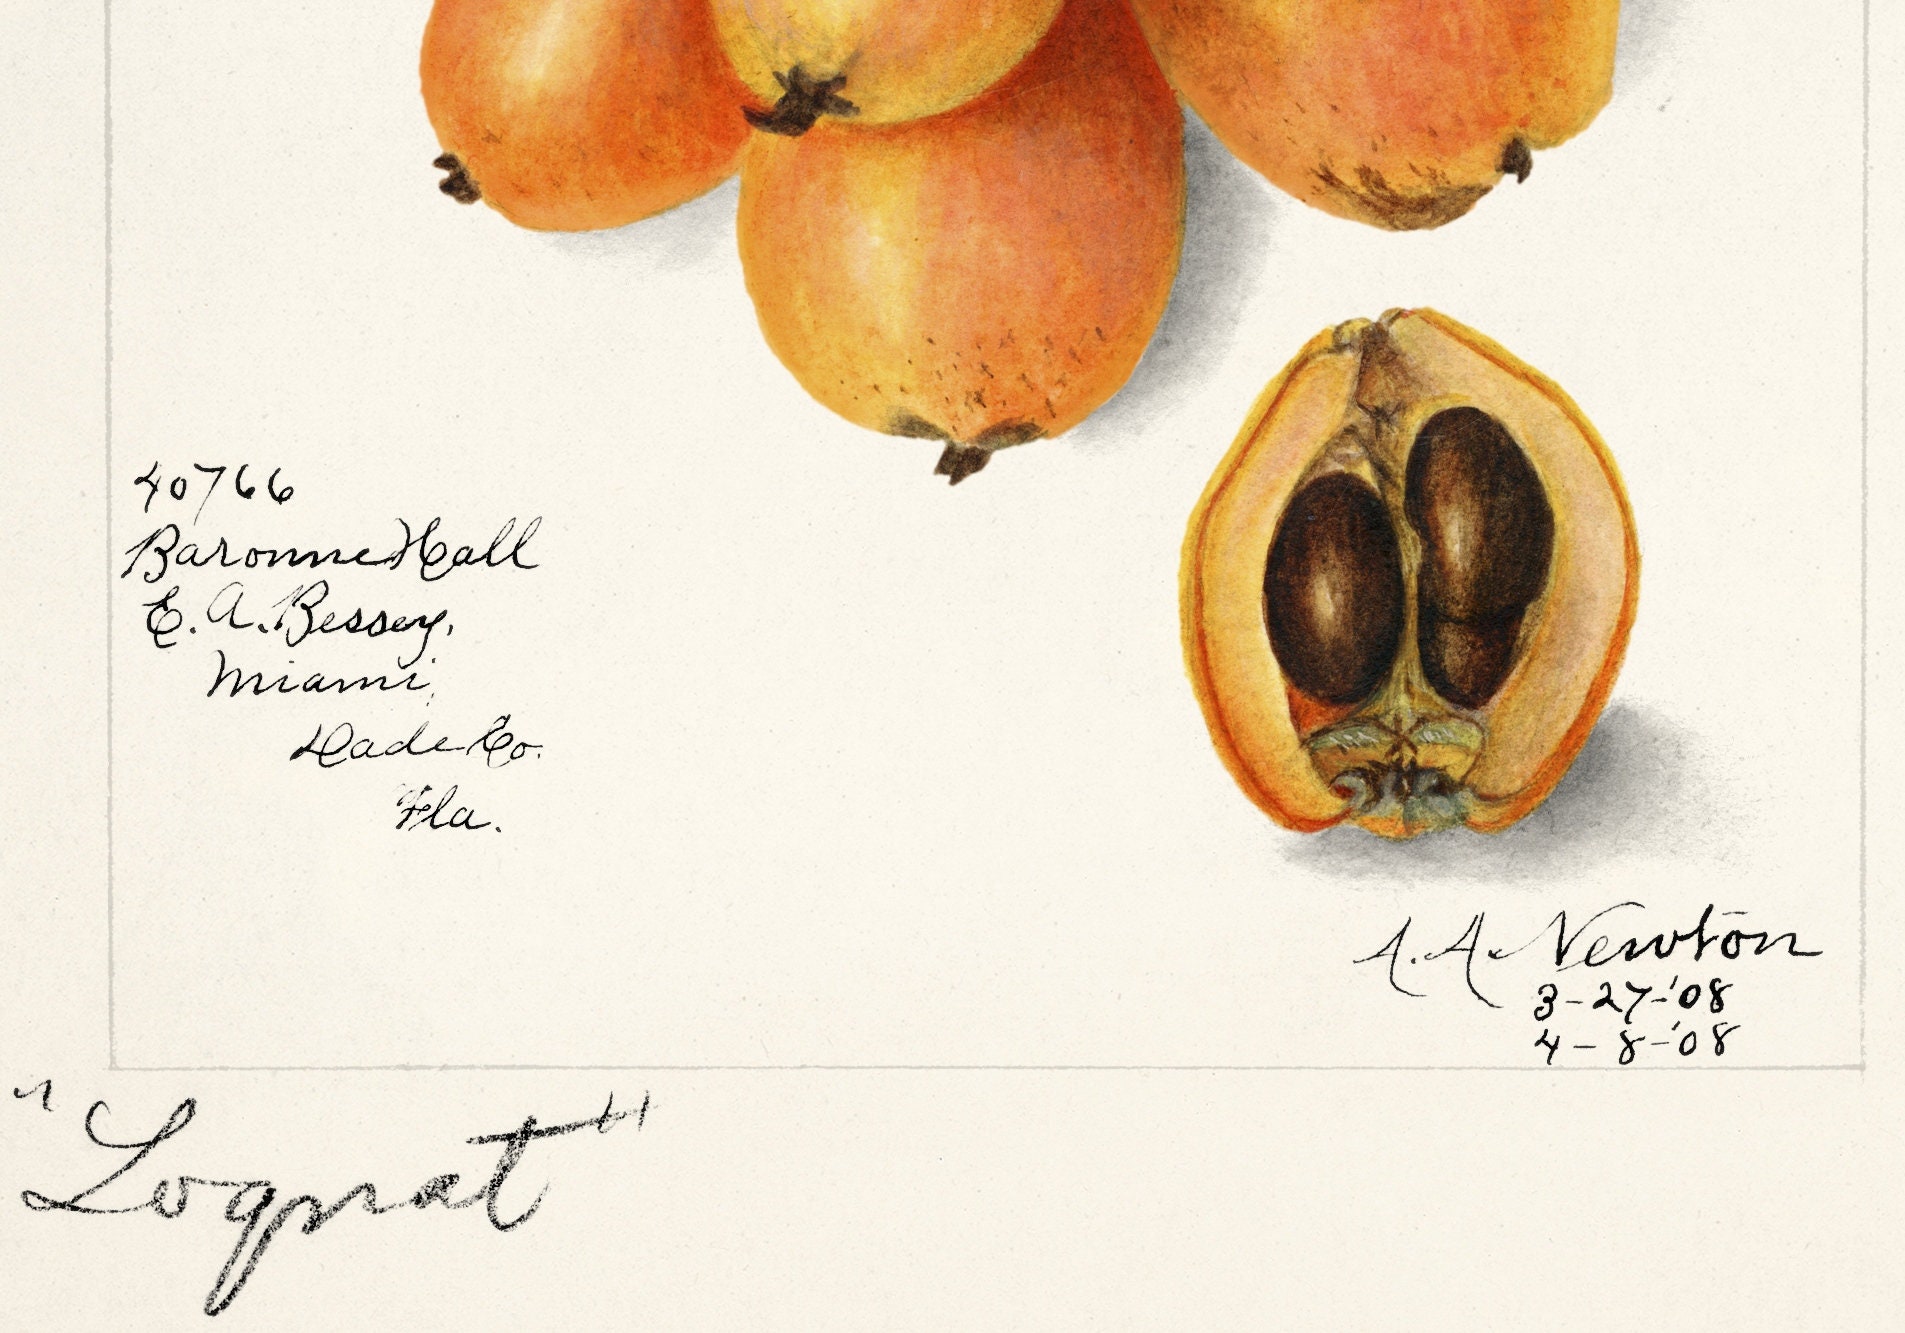 40766
Baronne Hall
E. A. Bessey,
Miami,
Dade Co.
Fla.
A. A. Newton
3-27-'08
4-8-'08
"Loquat"